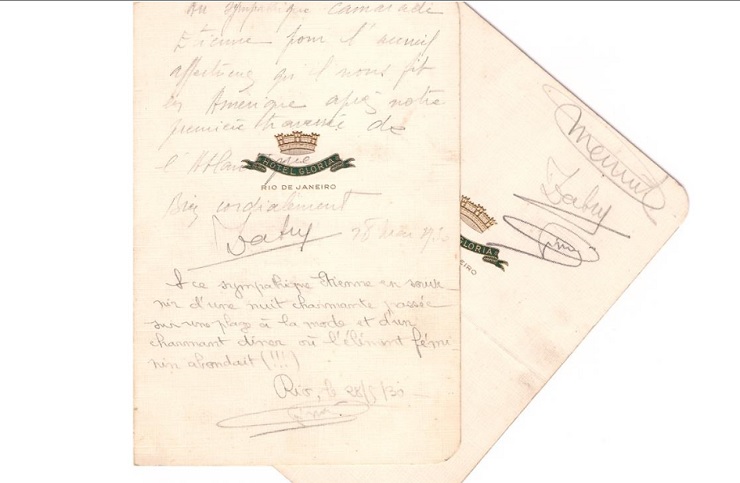 Au sympathique camarade
Etienne pour l'accueil
affectueux qu'il nous fit
en Amérique après notre
première traversée de
l'Atlantique
HOTEL GLORIA
RIO DE JANEIRO
Bien cordialement
Dabry
28 mai 1930
A ce sympathique Etienne en souve-
nir d'une nuit charmante passée
sur une plage à la mode et d'un
charmant diner où l'élément fémi
nin abondait (!!!)
Rio, le 28/5/30
Gimié
Mermoz
Dabry
Gimié
GLORIA
EIRO